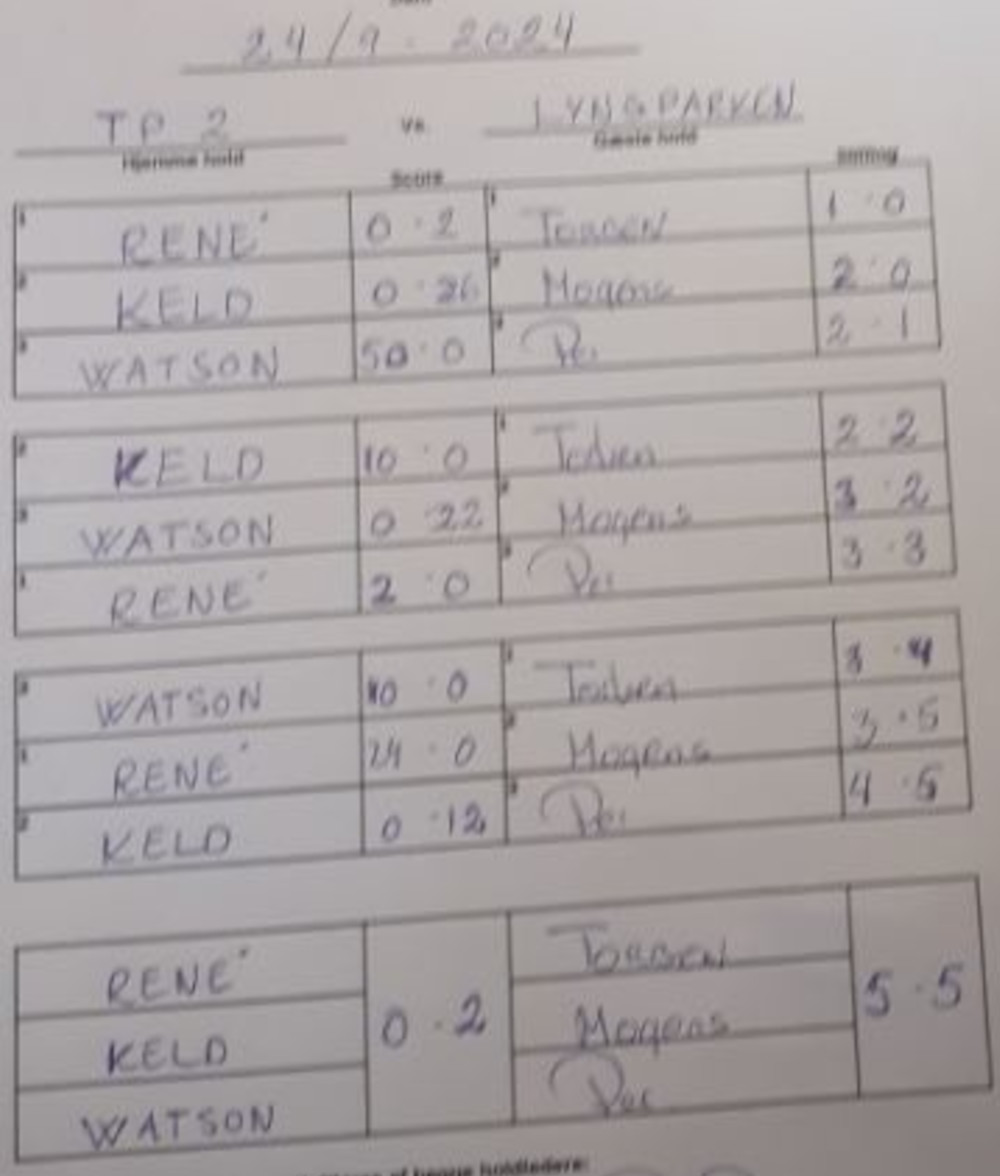 24/9 - 2024
TP 2 vs. LYNGPARKEN
Hjemme hold Gæste hold
Score Stilling
1 RENE' 0 - 2 1 TORBEN 1 - 0
2 KELD 0 - 26 2 Mogens 2 - 0
3 WATSON 50 - 0 3 Per 2 - 1
2 KELD 10 - 0 1 Torben 2 - 2
3 WATSON 0 - 22 2 Mogens 3 - 2
1 RENE' 2 - 0 3 Per 3 - 3
3 WATSON 10 - 0 1 Torben 3 - 4
1 RENE' 24 - 0 2 Mogens 3 - 5
2 KELD 0 - 12 3 Per 4 - 5
RENE' TORBEN
KELD 0 - 2 Mogens 5 - 5
WATSON Per
af begge holdledere: